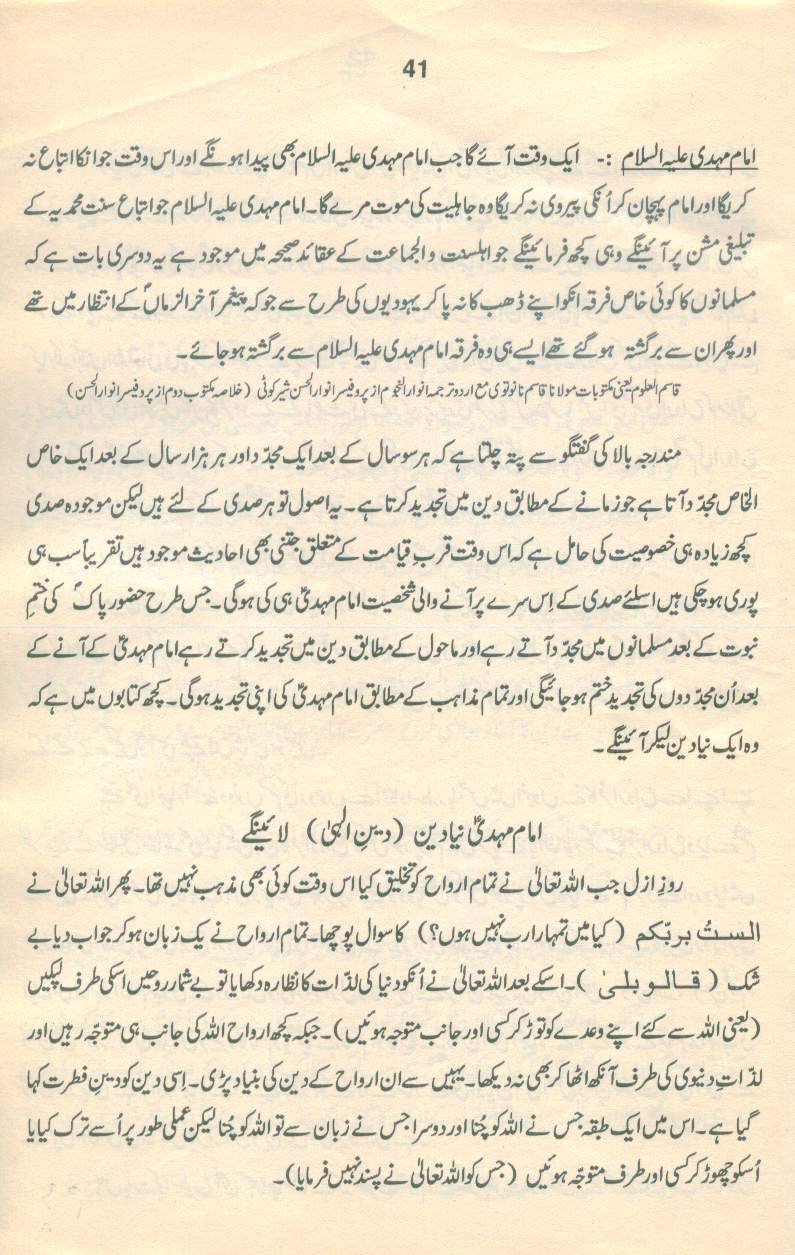 41
امام مہدی علیہ السلام :- ایک وقت آئے گا جب امام مہدی علیہ السلام بھی پیدا ہونگے اور اس وقت جو انکا اتباع نہ
کریگا اور امام پہچان کر اُنکی پیروی نہ کریگا وہ جاہلیت کی موت مرے گا۔ امام مہدی علیہ السلام جو اتباع سنت محمدیہ کے
تبلیغی مشن پر آئینگے وہی کچھ فرمائینگے جو اہلسنت والجماعت کے عقائد صحیحہ میں موجود ہے یہ دوسری بات ہے کہ
مسلمانوں کا کوئی خاص فرقہ انکو اپنے ڈھب کا نہ پا کر یہودیوں کی طرح سے جو کہ پیغمبر آخر الزماں کے انتظار میں تھے
اور پھر ان سے برگشتہ ہو گئے تھے ایسے ہی وہ فرقہ امام مہدی علیہ السلام سے برگشتہ ہو جائے۔
قاسم العلوم یعنی مکتوبات مولانا قاسم نانوتوی مع اردو ترجمہ انوار النجوم از پروفیسر انوار الحسن شیرکوٹی (خلاصہ مکتوب دوم از پروفیسر انوار الحسن)
مندرجہ بالا کی گفتگو سے پتہ چلتا ہے کہ ہر سو سال کے بعد ایک مجدّد اور ہر ہزار سال کے بعد ایک خاص
الخاص مجدّد آتا ہے جو زمانے کے مطابق دین میں تجدید کرتا ہے۔ یہ اصول تو ہر صدی کے لئے ہیں لیکن موجودہ صدی
کچھ زیادہ ہی خصوصیت کی حامل ہے کہ اس وقت قربِ قیامت کے متعلق جتنی بھی احادیث موجود ہیں تقریباً سب ہی
پوری ہو چکی ہیں اسلئے صدی کے اِس سرے پر آنے والی شخصیت امام مہدیؑ ہی کی ہوگی۔ جس طرح حضور پاکؐ کی ختمِ
نبوت کے بعد مسلمانوں میں مجدّد آتے رہے اور ماحول کے مطابق دین میں تجدید کرتے رہے امام مہدیؑ کے آنے کے
بعد اُن مجدّدوں کی تجدید ختم ہو جائیگی اور تمام مذاہب کے مطابق امام مہدیؑ کی اپنی تجدید ہوگی۔ کچھ کتابوں میں ہے کہ
وہ ایک نیا دین لیکر آئینگے۔
امام مہدیؑ نیا دین (دینِ الٰہی) لائینگے
روزِ ازل جب اللہ تعالیٰ نے تمام ارواح کو تخلیق کیا اس وقت کوئی بھی مذہب نہیں تھا۔ پھر اللہ تعالیٰ نے
الستُ بربّکم (کیا میں تمہارا رب نہیں ہوں؟) کا سوال پوچھا۔ تمام ارواح نے یک زبان ہو کر جواب دیا بے
شک (قالو بلیٰ)۔ اسکے بعد اللہ تعالیٰ نے اُنکو دنیا کی لذّات کا نظارہ دکھایا تو بے شمار روحیں اسکی طرف لپکیں
(یعنی اللہ سے کئے اپنے وعدے کو توڑ کر کسی اور جانب متوجہ ہوئیں)۔ جبکہ کچھ ارواح اللہ کی جانب ہی متوجّہ رہیں اور
لذّاتِ دنیوی کی طرف آنکھ اٹھا کر بھی نہ دیکھا۔ یہیں سے ان ارواح کے دین کی بنیاد پڑی۔ اِسی دین کو دینِ فطرت کہا
گیا ہے۔ اس میں ایک طبقہ جس نے اللہ کو چُنا اور دوسرا جس نے زبان سے تو اللہ کو چُنا لیکن عملی طور پر اُسے ترک کیا یا
اُسکو چھوڑ کر کسی اور طرف متوجّہ ہوئیں (جس کو اللہ تعالیٰ نے پسند نہیں فرمایا)۔